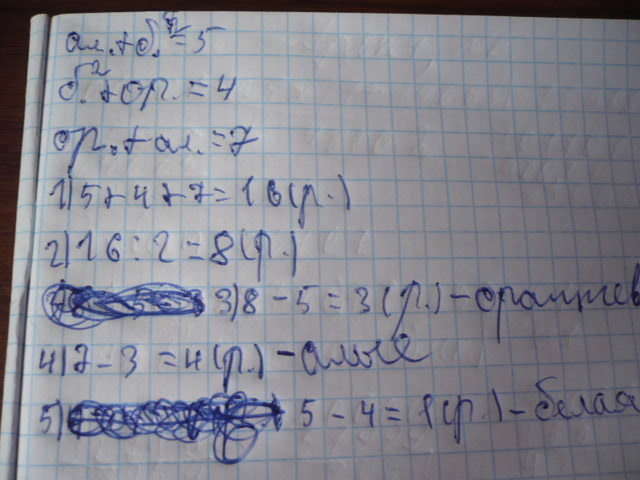 ал.+б.=5
б.+ор.=4
ор.+ал.=7
1)5+4+7=16(р.)
2)16:2=8(р.)
3)8-5=3(р.)-оранжев
4)7-3=4(р.)-алые
5) 5-4=1(р.)-белая